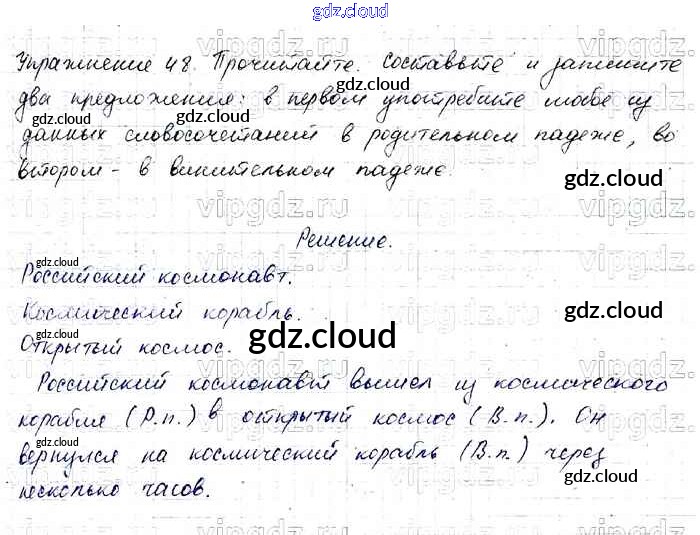 gdz.cloud
Упражнение 48. Прочитайте. Составьте и запишите
два предложения: в первом употребите любое из
данных словосочетаний в родительном падеже, во
втором - в винительном падеже.
gdz.cloud
Решение.
Российский космонавт.
Космический корабль.
Открытый космос.
gdz.cloud
Российский космонавт вышел из космического
корабля (Р.п.) в открытый космос (В.п.). Он
вернулся на космический корабль (В.п.) через
несколько часов.
gdz.cloud
vipgdz.ru